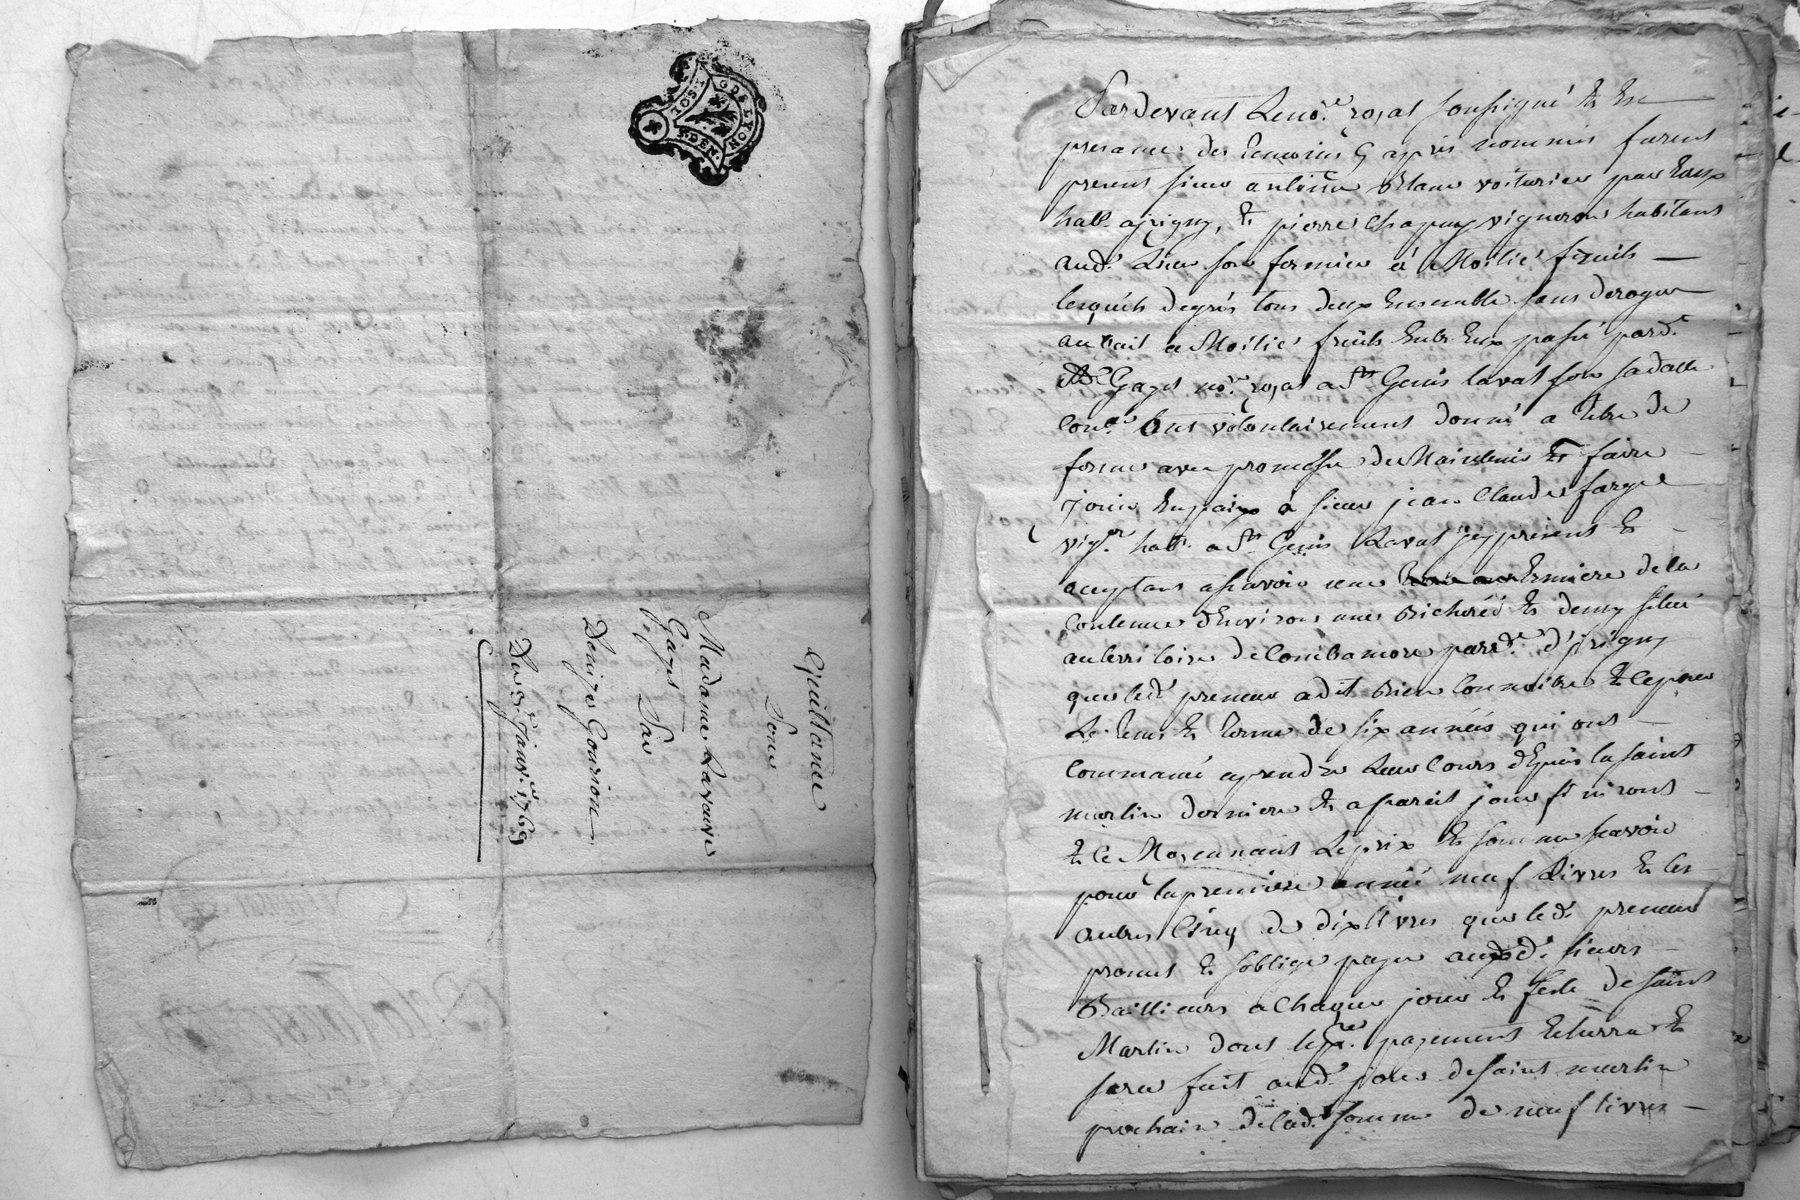 GDE LYON
2 SOLS
8 DEN
Quittance
Pour
Madame Lavaure
Gayet Par
Denize Gourion
Du 3e Janv.er 1769
Pardevant Le no.re royal soussigné Et En
presance des temoins cy apres nommés furent
presens sieur antoine Blanc voiturier par Eaux
hab.t a jrigny, Et pierre Chapuy vigneron habitant
aud.t Lieu son fermier a Moitié fruits
lesquels de gré tous deux Ensemble sans deroger
au bail a Moitié fruits Entr Eux passé pard.t
M.e Gayet no.re royal a St Genis laval sous sa datte
Con.e Ont volontairement donné a titre de
ferme avec promesse de Maintenir Et faire
jouir En paix a sieur jean Claude farge
vig.n hab.t a St Genis Laval jcy present Et
acceptant assavoir une Ermiere de la
Contenue d'Environ une Bicherée Et demy scitué
au territoire de Combamore par.se d'jrigny
que led.t preneur a dit Bien Connoitre Et ce pour
Le tems Et terme de six années qui ont
Commancé a prendre Leur Cours depuis la saint
martin derniere Et a pareil jour finiront
Et ce Moyennant Le prix Et somme scavoir
pour la premiere année neuf Livres Et les
autres Cinq de dix livres que led.t preneur
promet Et soblige payer auxd.ts sieurs
Bailleurs a Chaque jour Et feste de saint
Martin dont le p.er payement Echerra Et
sera fait aud.t jour de saint martin
prochain de lad.te somme de neuf livres